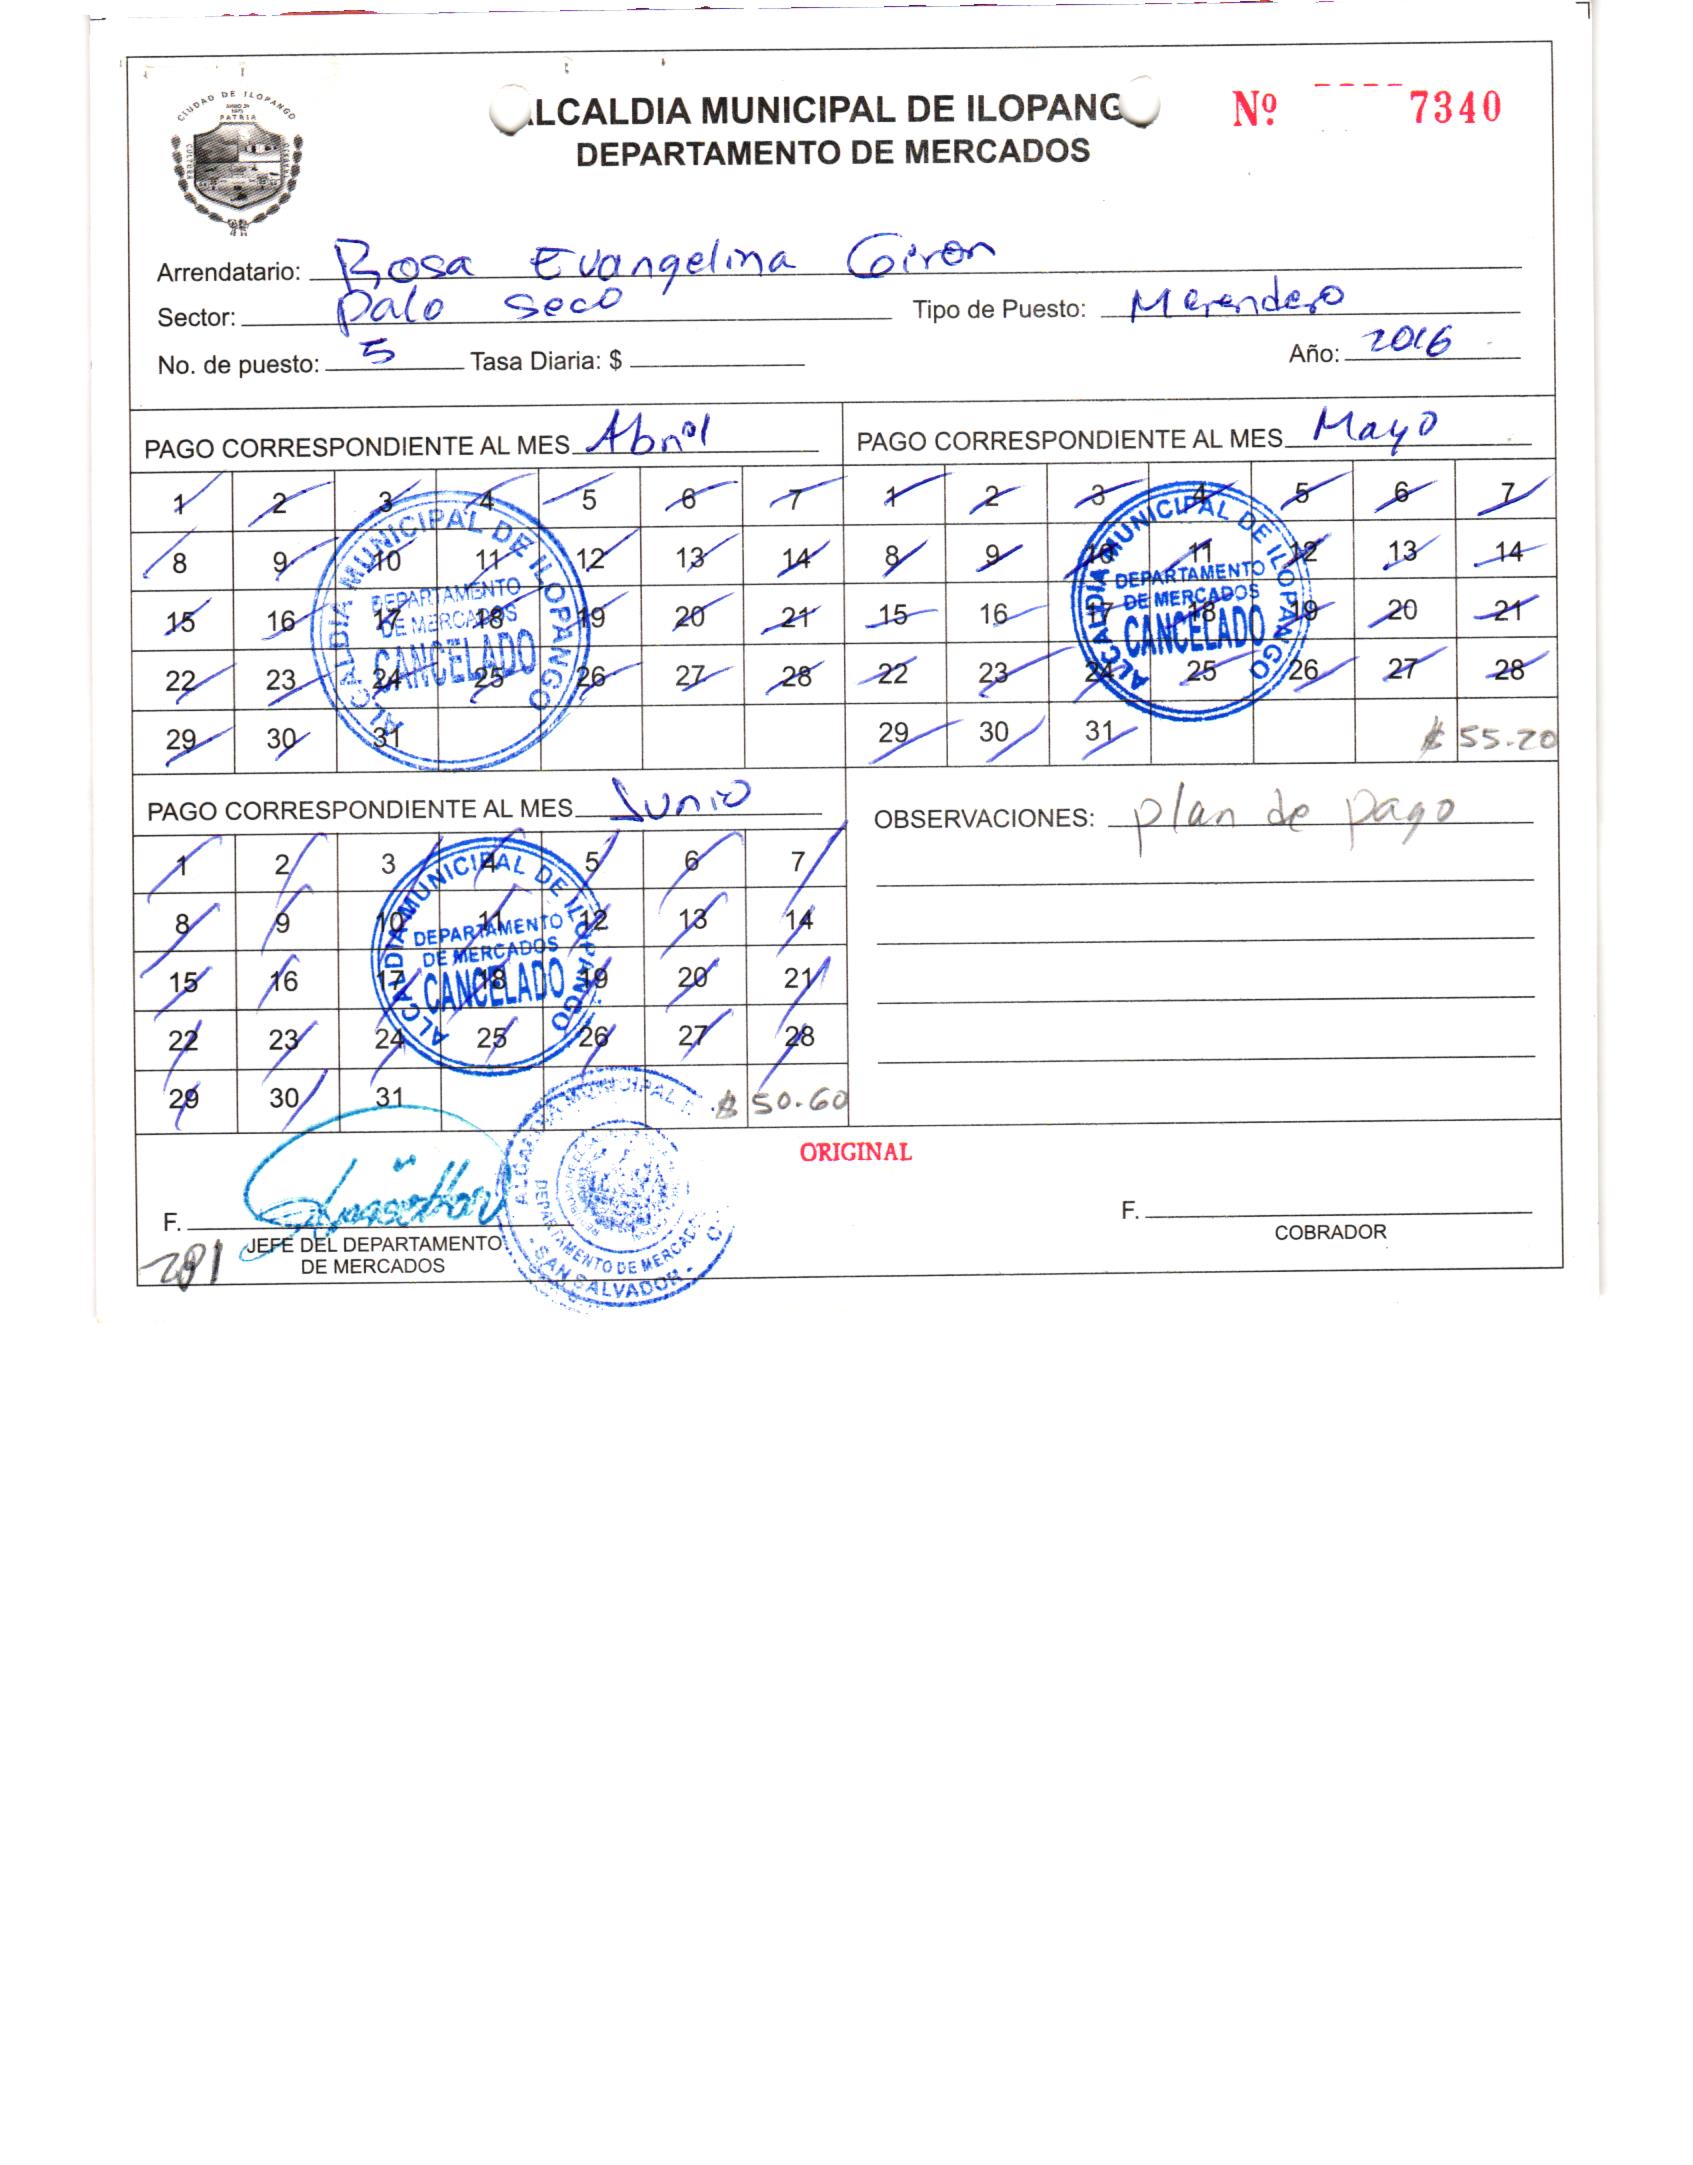 CIUDAD DE ILOPANGO
PATRIA
ALCALDIA MUNICIPAL DE ILOPANGO
DEPARTAMENTO DE MERCADOS
Nº 7340
Arrendatario: Rosa Evangelina Giron
Sector: Palo Seco Tipo de Puesto: Merendero
No. de puesto: 5 Tasa Diaria: $ Año: 2016
PAGO CORRESPONDIENTE AL MES Abril
1 2 3 4 5 6 7
8 9 10 11 12 13 14
15 16 17 18 19 20 21
22 23 24 25 26 27 28
29 30 31
ALCALDIA MUNICIPAL DE ILOPANGO
DEPARTAMENTO
DE MERCADOS
CANCELADO
PAGO CORRESPONDIENTE AL MES Mayo
1 2 3 4 5 6 7
8 9 10 11 12 13 14
15 16 17 18 19 20 21
22 23 24 25 26 27 28
29 30 31 $ 55.20
ALCALDIA MUNICIPAL DE ILOPANGO
DEPARTAMENTO
DE MERCADOS
CANCELADO
PAGO CORRESPONDIENTE AL MES Junio
1 2 3 4 5 6 7
8 9 10 11 12 13 14
15 16 17 18 19 20 21
22 23 24 25 26 27 28
29 30 31 $ 50.60
ALCALDIA MUNICIPAL DE ILOPANGO
DEPARTAMENTO
DE MERCADOS
CANCELADO
OBSERVACIONES: plan de pago
ORIGINAL
F.
JEFE DEL DEPARTAMENTO
DE MERCADOS
281
ALCALDIA MUNICIPAL
DEPARTAMENTO DE MERCADO
SAN SALVADOR
F.
COBRADOR